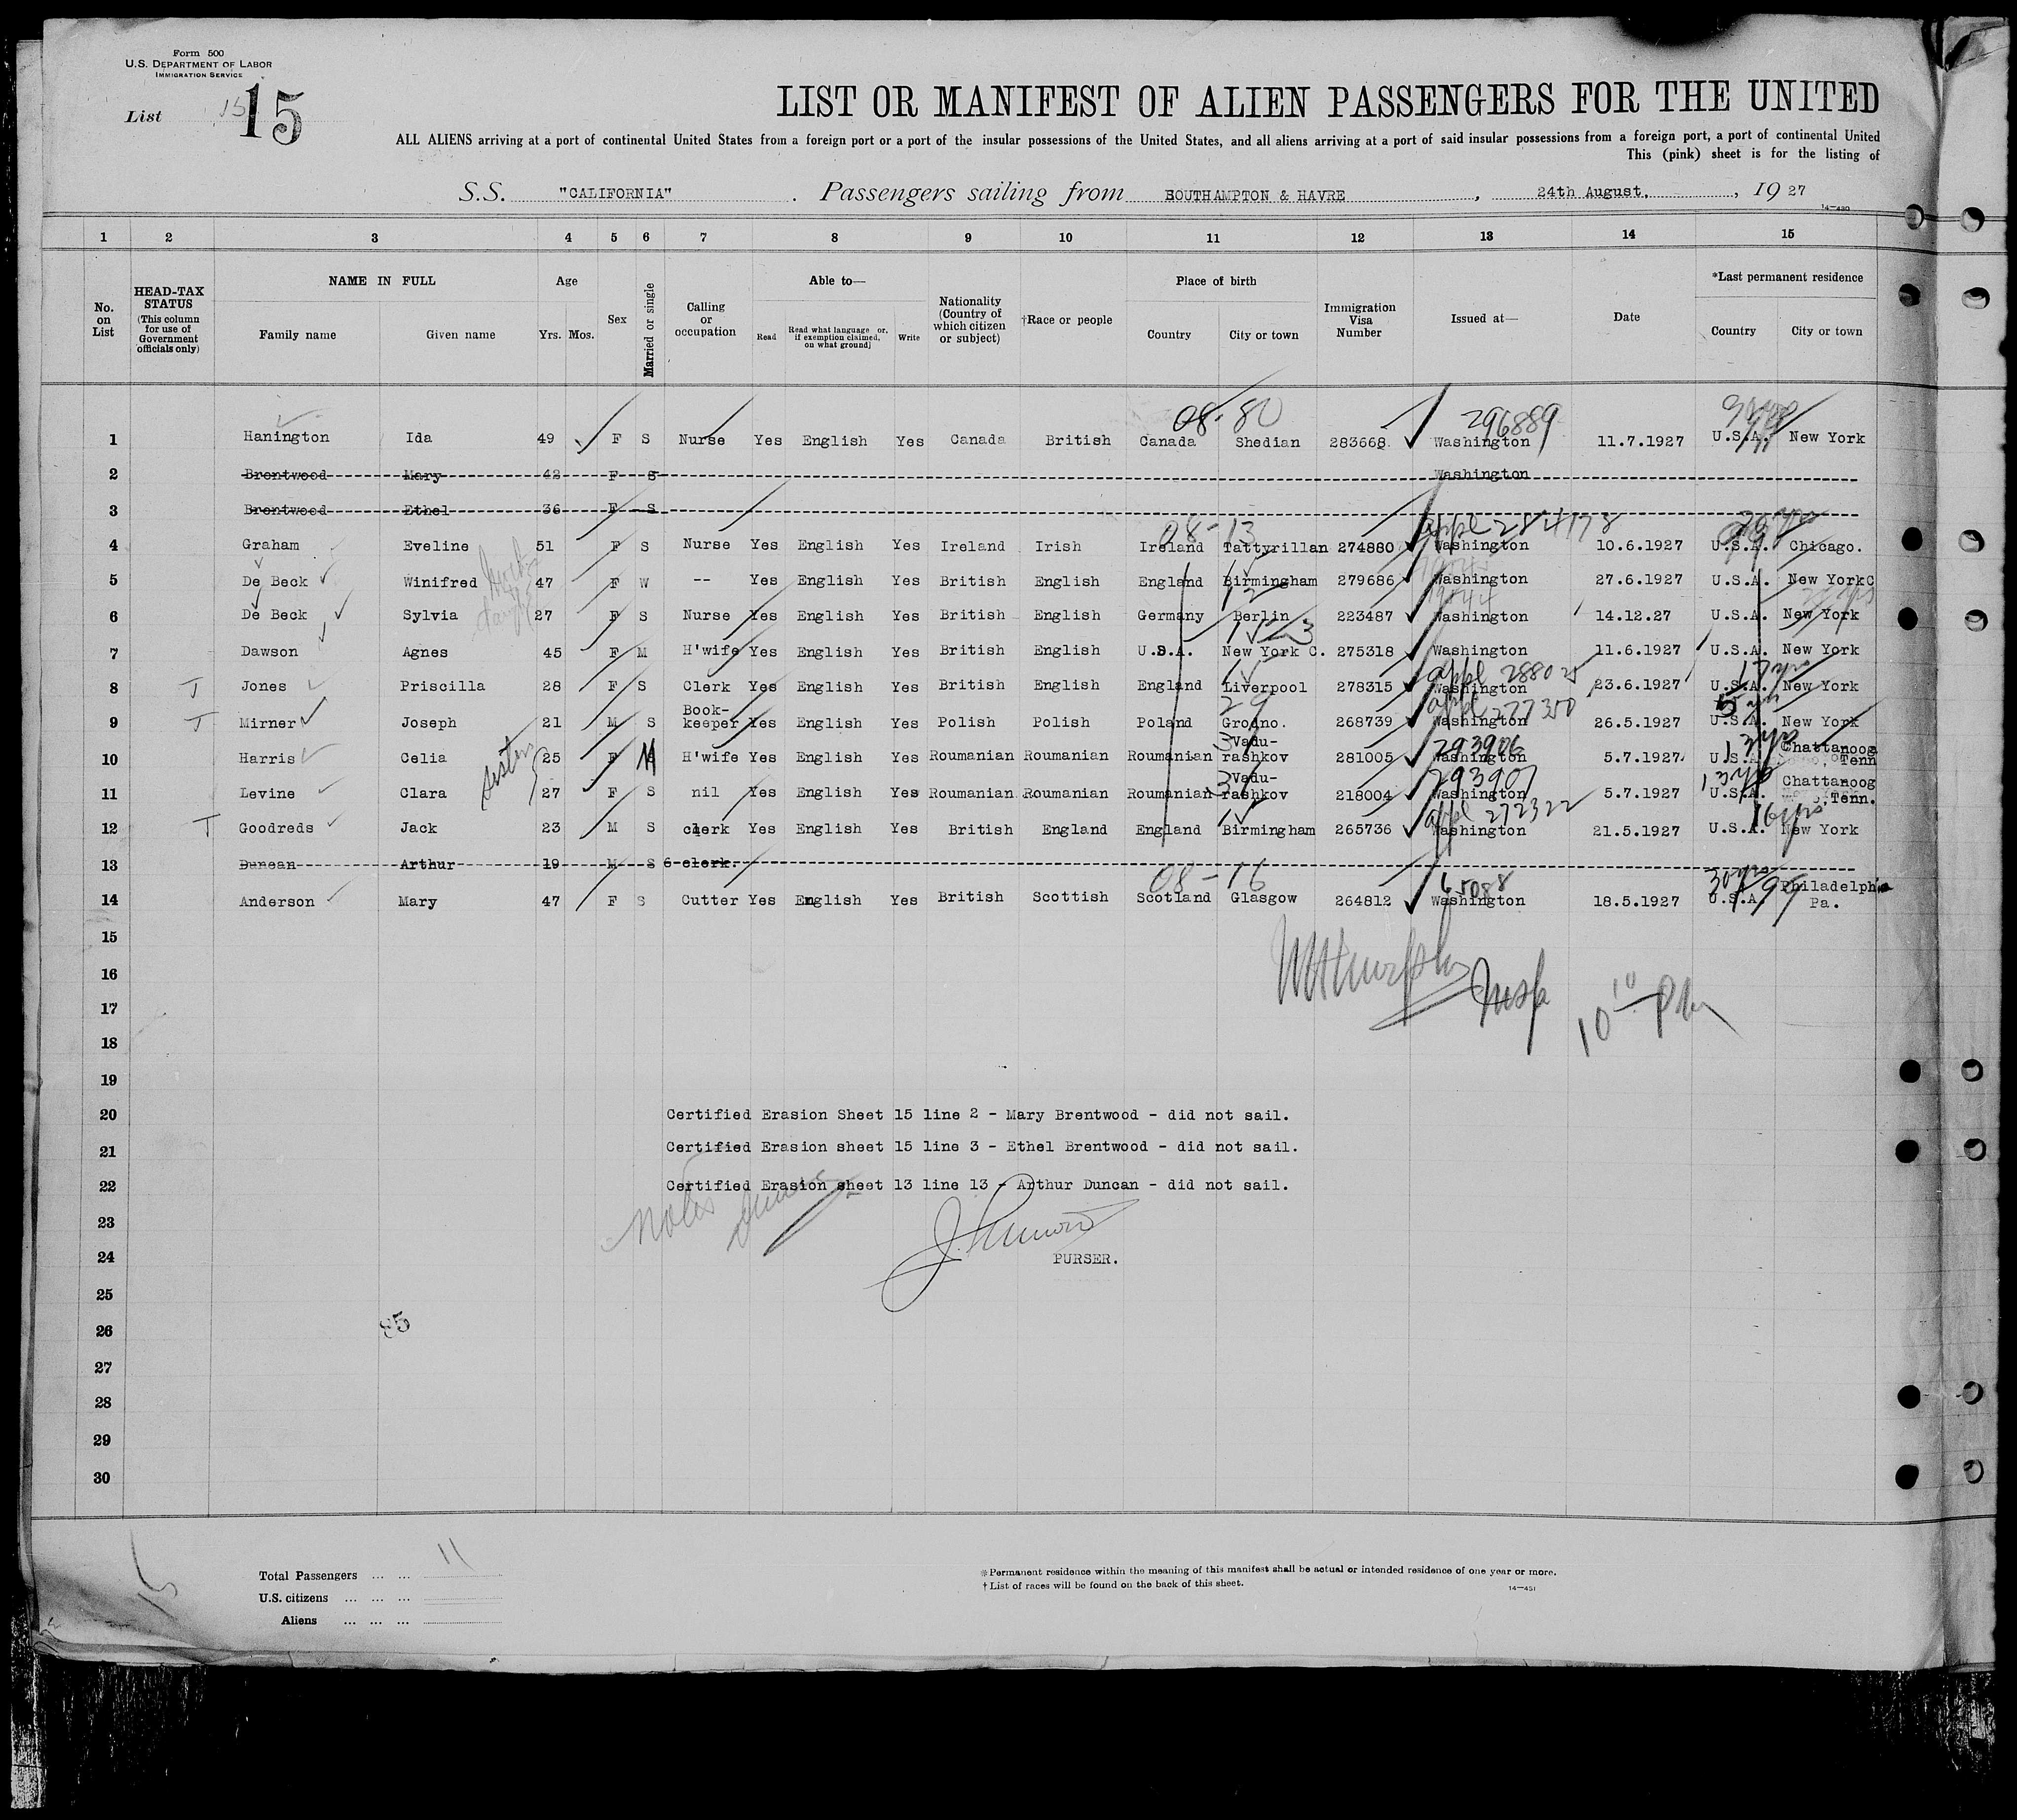 Form 500
U.S. DEPARTMENT OF LABOR
IMMIGRATION SERVICE
List 15 15
LIST OR MANIFEST OF ALIEN PASSENGERS FOR THE UNITED
ALL ALIENS arriving at a port of continental United States from a foreign port or a port of the insular possessions of the United States, and all aliens arriving at a port of said insular possessions from a foreign port, a port of continental United
This (pink) sheet is for the listing of
S.S. "CALIFORNIA". Passengers sailing from SOUTHAMPTON & HAVRE, 24th August, 1927
14—430
1 2 3 4 5 6 7 8 9 10 11 12 13 14 15
No. on List
HEAD-TAX STATUS (This column for use of Government officials only)
NAME IN FULL
Family name Given name
Age
Yrs. Mos.
Sex
Married or single
Calling or occupation
Able to—
Read
Read what language or, if exemption claimed, on what ground)
Write
Nationality (Country of which citizen or subject)
†Race or people
Place of birth
Country City or town
Immigration Visa Number
Issued at—
Date
*Last permanent residence
Country City or town
08-80 296889
1 Hanington Ida 49 F S Nurse Yes English Yes Canada British Canada Shedian 283668 Washington 11.7.1927 U.S.A. New York
2 Brentwood Mary 42 F S Washington
3 Brentwood Ethel 36 F S
08-13 appl 284178
4 Graham Eveline 51 F S Nurse Yes English Yes Ireland Irish Ireland Tattyrillan 274880 Washington 10.6.1927 U.S.A. Chicago.
5 De Beck Winifred 47 F W -- Yes English Yes British English England Birmingham 279686 Washington 27.6.1927 U.S.A. New York C
6 De Beck Sylvia 27 F S Nurse Yes English Yes British English Germany Berlin 223487 Washington 14.12.27 U.S.A. New York
7 Dawson Agnes 45 F M H'wife Yes English Yes British English U.S.A. New York C. 275318 Washington 11.6.1927 U.S.A. New York
appl 288025
8 T Jones Priscilla 28 F S Clerk Yes English Yes British English England Liverpool 278315 Washington 23.6.1927 U.S.A. New York
29 appl 277350 5 yrs
9 T Mirner Joseph 21 M S Book-keeper Yes English Yes Polish Polish Poland Grodno. 268739 Washington 26.5.1927 U.S.A. New York
sisters
293906
10 Harris Celia 25 F M H'wife Yes English Yes Roumanian Roumanian Roumanian Vadu-rashkov 281005 Washington 5.7.1927 U.S.A. Chattanoog Tenn
293907
11 Levine Clara 27 F S nil Yes English Yes Roumanian Roumanian Roumanian Vadu-rashkov 218004 Washington 5.7.1927 U.S.A. Chattanoog Tenn.
appl 272322 16 yrs
12 T Goodreds Jack 23 M S clerk Yes English Yes British England England Birmingham 265736 Washington 21.5.1927 U.S.A. New York
13 Duncan Arthur 19 M S 6 clerk.
08-16 30 yrs
14 Anderson Mary 47 F S Cutter Yes English Yes British Scottish Scotland Glasgow 264812 Washington 18.5.1927 U.S.A. Philadelphia Pa.
15
16
Insp 10 10 PM
17
18
19
20 Certified Erasion Sheet 15 line 2 - Mary Brentwood - did not sail.
21 Certified Erasion sheet 15 line 3 - Ethel Brentwood - did not sail.
22 Certified Erasion sheet 13 line 13 - Arthur Duncan - did not sail.
23
24 PURSER.
25
26 85
27
28
29
30
Total Passengers ... ... 11
U.S. citizens ... ... ...
Aliens ... ... ...
15
*Permanent residence within the meaning of this manifest shall be actual or intended residence of one year or more.
†List of races will be found on the back of this sheet. 14—451